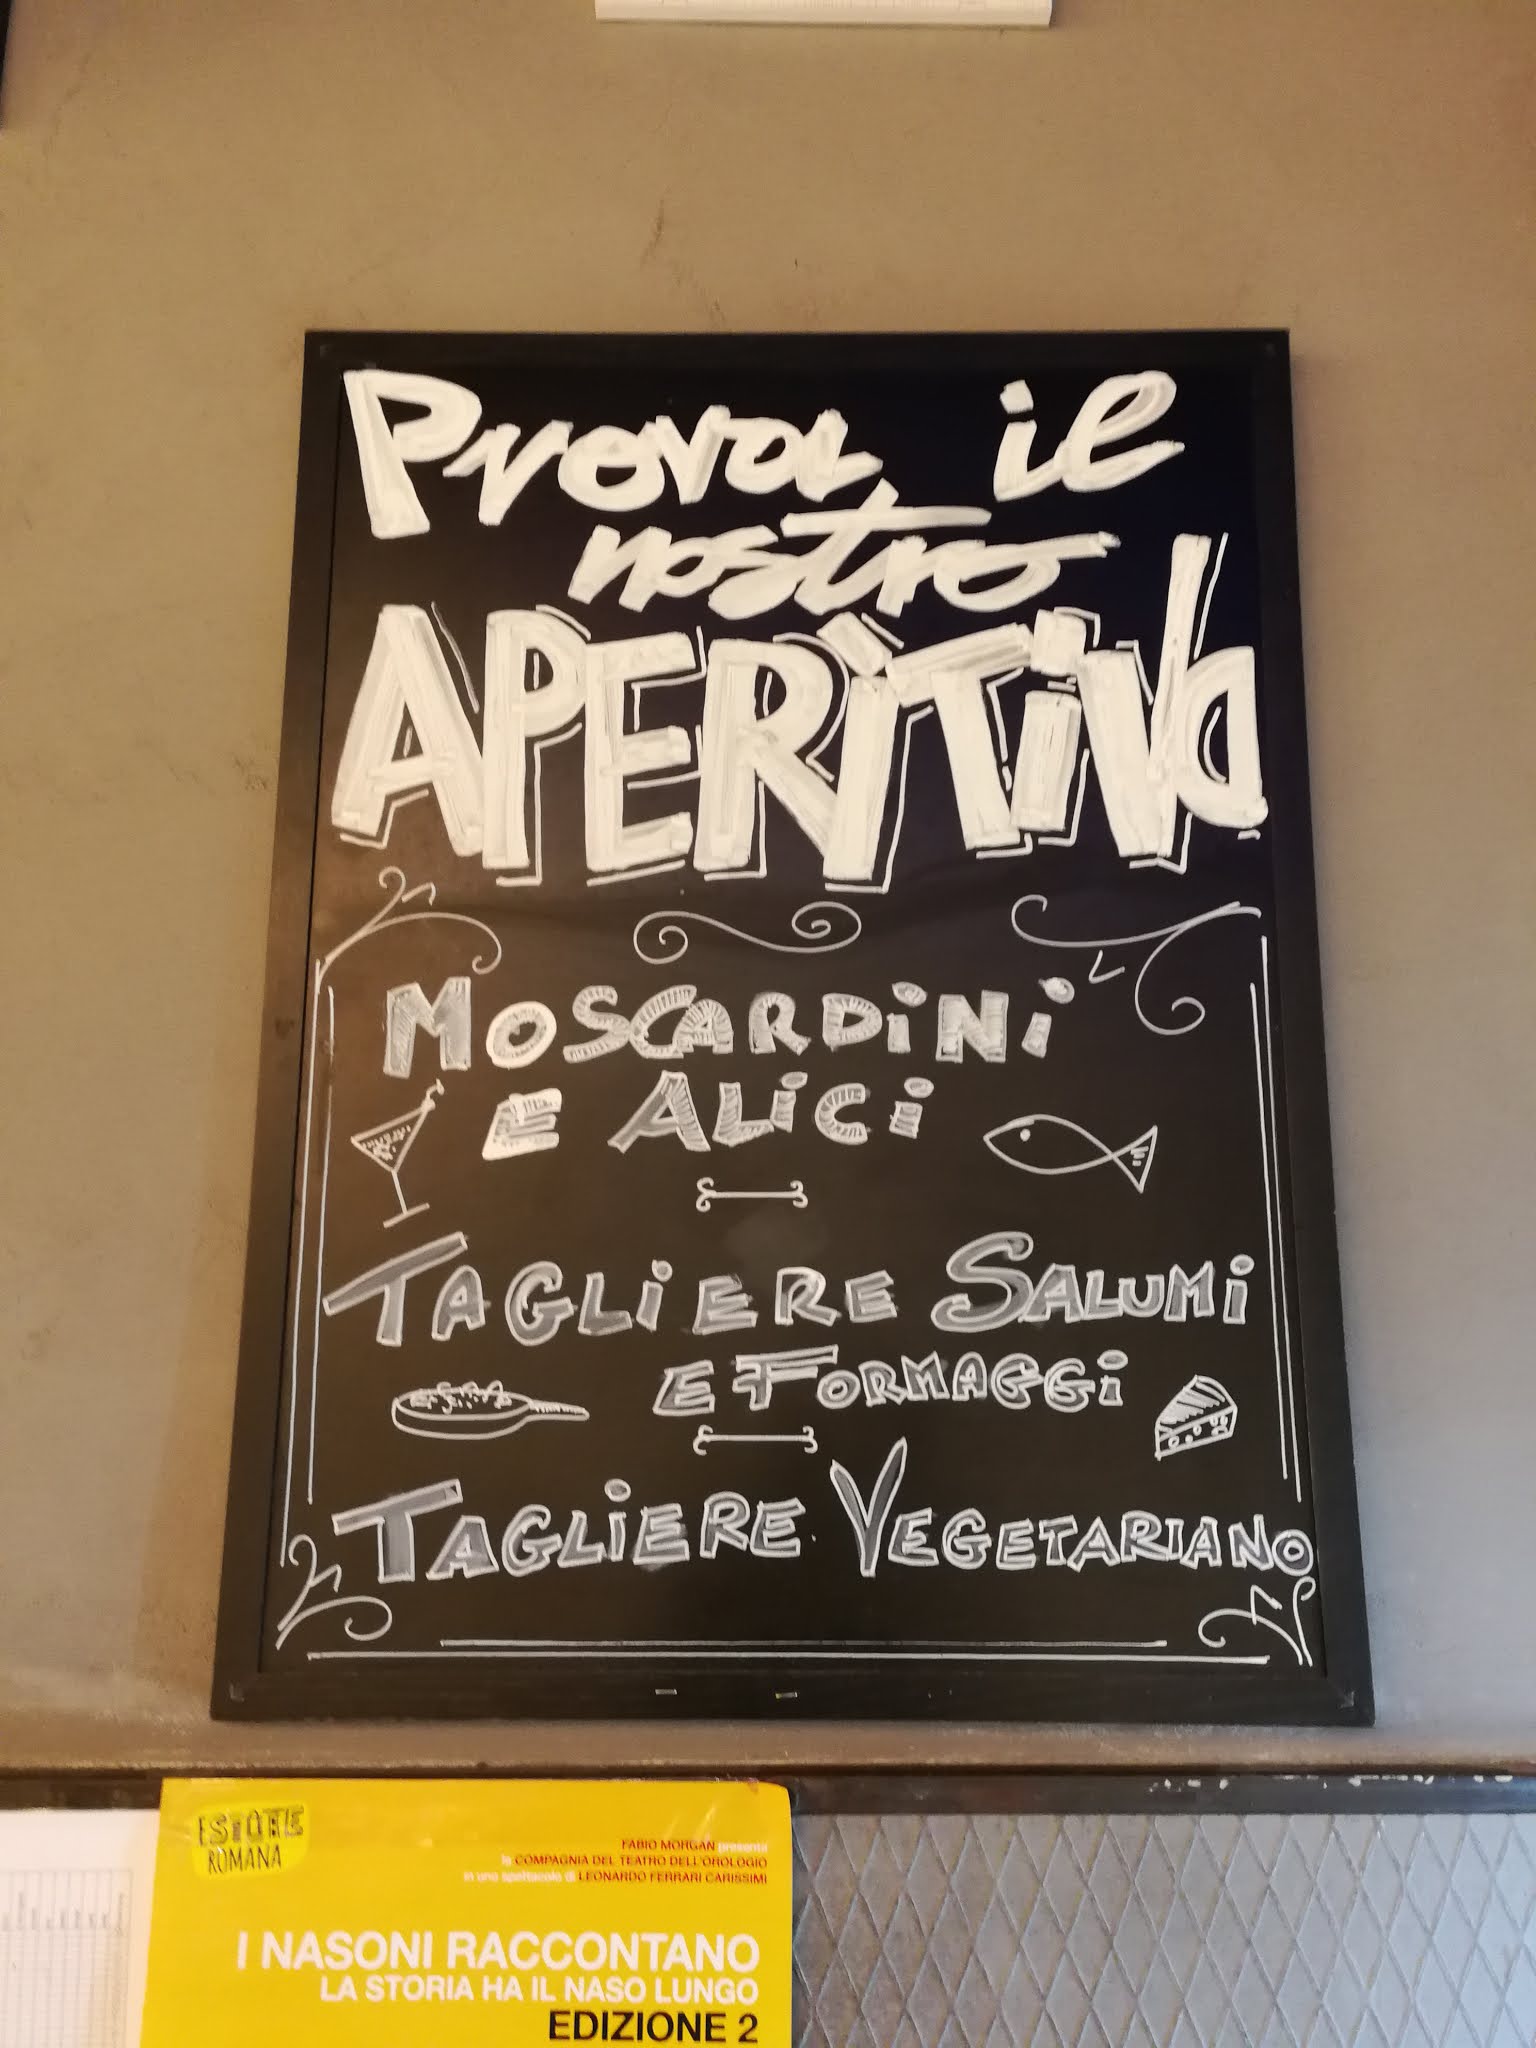 Prova il
nostro
APERITIVO
MOSCARDINI
E ALICI
TAGLIERE SALUMI
E FORMAGGI
TAGLIERE VEGETARIANO
ESTATE
ROMANA
FABIO MORGAN presenta
la COMPAGNIA DEL TEATRO DELL'OROLOGIO
in uno spettacolo di LEONARDO FERRARI CARISSIMI
I NASONI RACCONTANO
LA STORIA HA IL NASO LUNGO
EDIZIONE 2